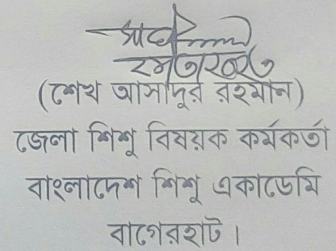 (শেখ আসাদুর রহমান)
জেলা শিশু বিষয়ক কর্মকর্তা
বাংলাদেশ শিশু একাডেমি
বাগেরহাট।